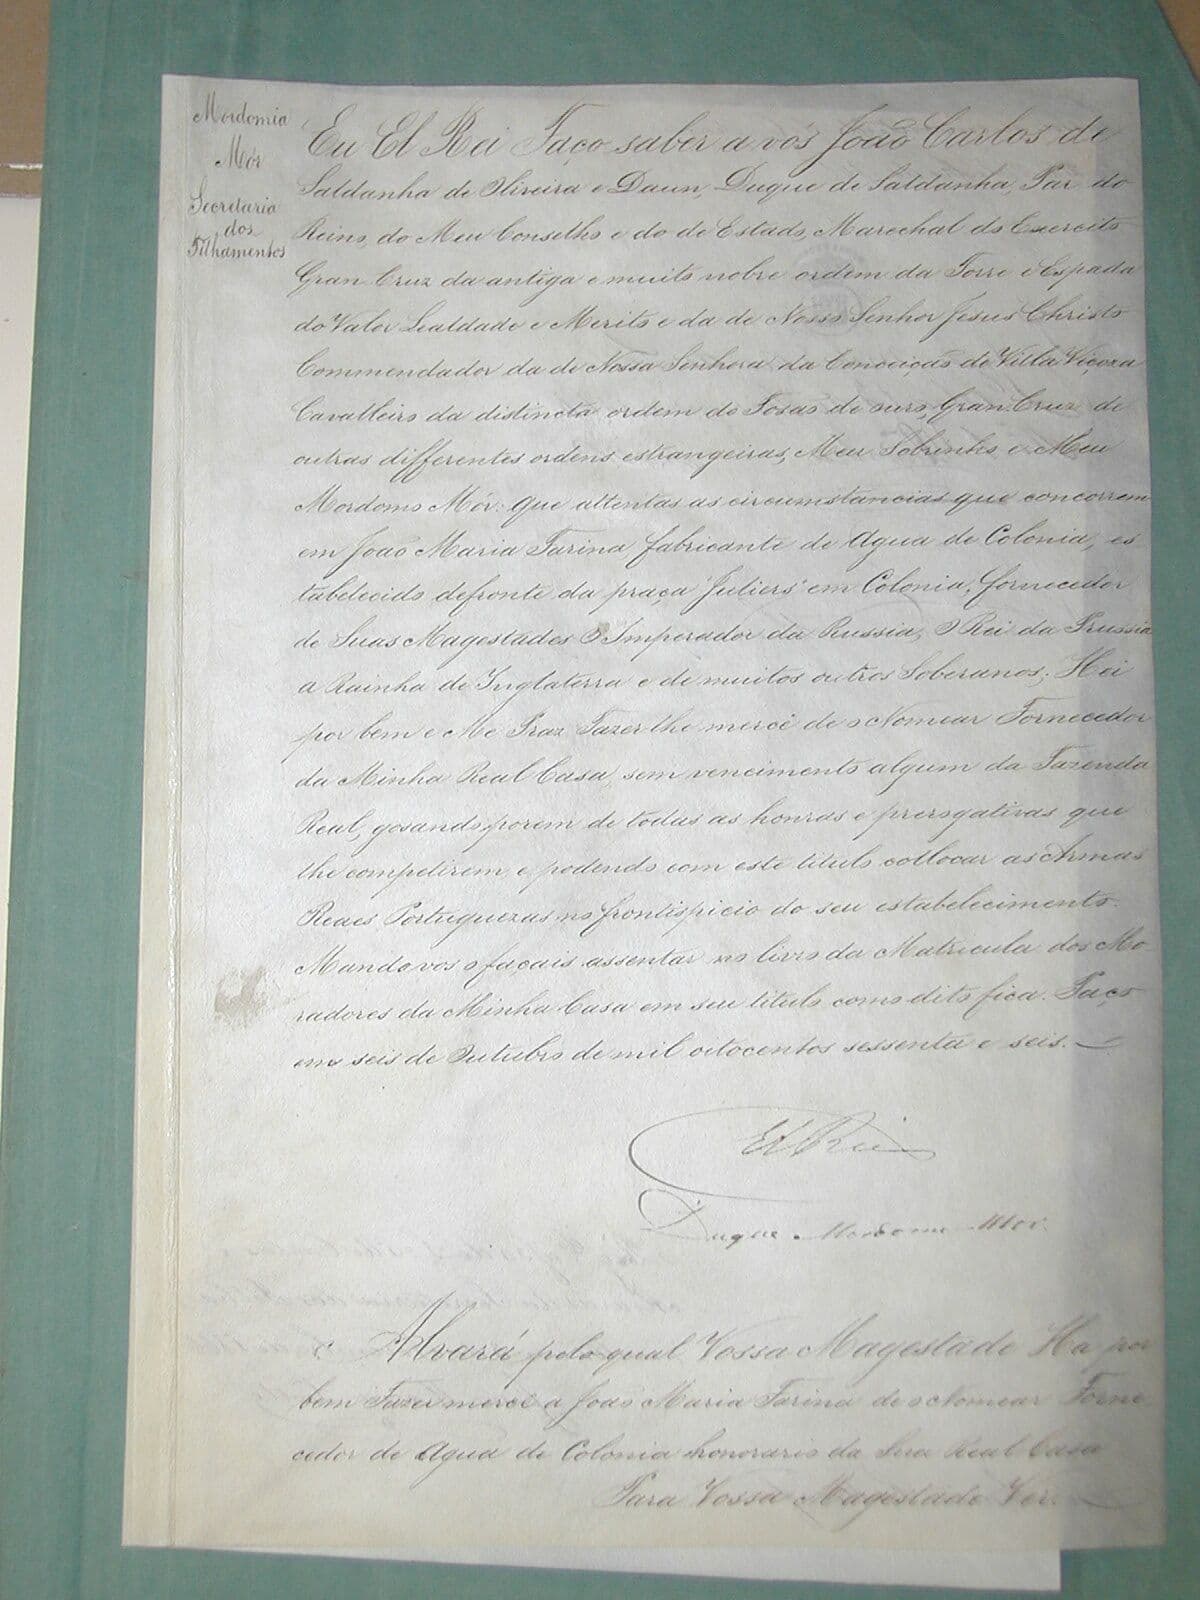 Mordomia
Mór
Secretaria
dos
Filhamentos
Eu El Rei Faço saber a vós João Carlos de
Saldanha de Oliveira e Daun, Duque de Saldanha, Par do
Reino, do Meu Conselho e do de Estado, Marechal do Exercito
Gran Cruz da antiga e muito nobre ordem da Torre e Espada
do Valor Lealdade e Merito e da de Nosso Senhor Jesus Christo
Commendador da de Nossa Senhora da Conceição de Villa Viçoza
Cavalleiro da distincta ordem do Tosão de ouro, Gran Cruz de
outras differentes ordens estrangeiras, Meu Sobrinho e Meu
Mordomo Mór: que attentas as circumstancias que concorrem
em João Maria Farina fabricante de Agua de Colonia, es
tabelecido defronte da praça Juliers em Colonia, fornecedor
de Suas Magestades O Imperador da Russia, O Rei da Prussia
a Rainha de Inglaterra e de muitos outros Soberanos; Hei
por bem e Me Praz Fazer lhe mercê de o Nomear Fornecedor
da Minha Real Casa, sem vencimento algum da Fazenda
Real, gosando porem de todas as honras e prerogativas que
lhe competirem, e podendo com este titulo collocar as Armas
Reaes Portuguezas no frontispicio do seu estabelecimento.
Mando vos o façais assentar no livro da Matricula dos Mo
radores da Minha Casa em seu titulo como dito fica. Paço
em seis de Outubro de mil oitocentos sessenta e seis.
El Rei
Duque Mordomo Mór
Alvará pelo qual Vossa Magestade Ha por
bem Fazer mercê a João Maria Farina de o Nomear Forne
cedor de Agua de Colonia honorario da Sua Real Casa
Para Vossa Magestade Ver.